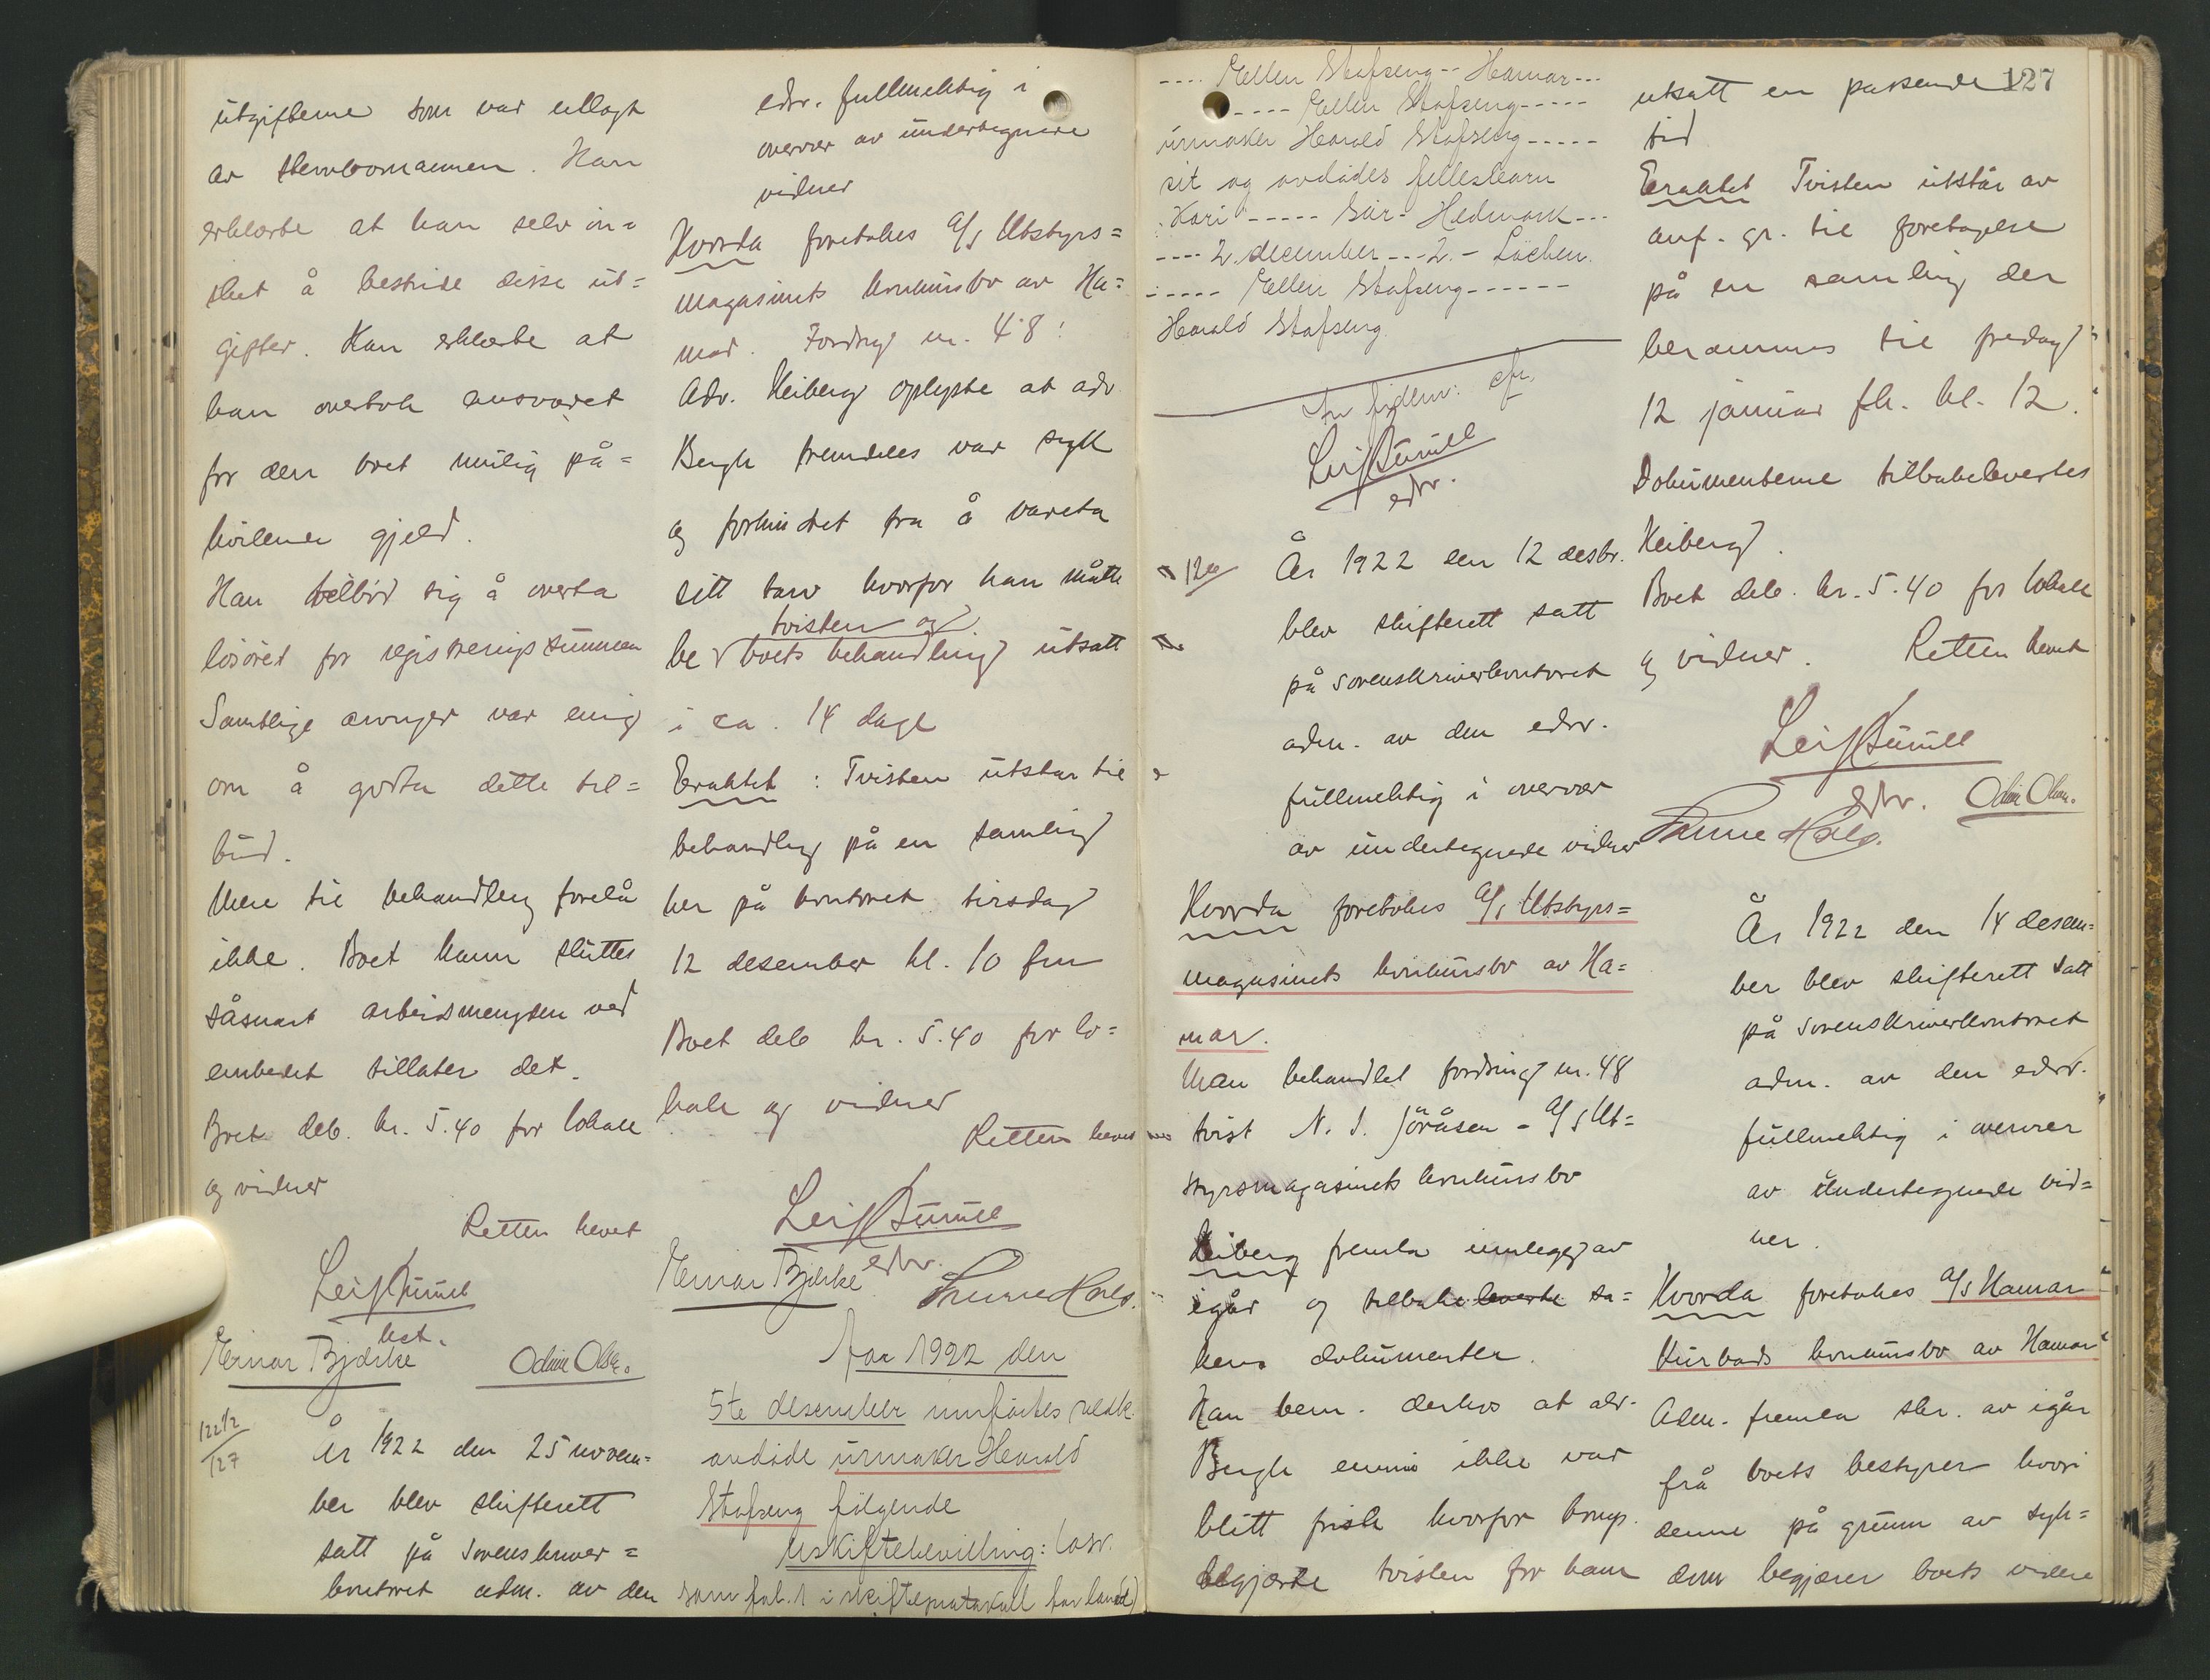 utgifterne som var utlagt
av stervbomannen. Han
erklærte at han selv øn=
sket å bestride disse ut=
gifter. Han erklærte at
han overtok ansvaret
for den boet mulig på=
hvilende gjeld.
Han tilbød sig å overta
løsøret for registreringssummen
Samtlige arvinger var enig
om å godta dette til=
bud.
Mere til behandling forelå
ikke. Boet kann sluttes
såsnart arbeidsmengden ved
embedet tillater det.
Boet deb. kr. 5.40 for lokale
og vidner
Retten hevet
Leif
kst.
Einar Bjerke Odin Olsen.
122 1/2
127
År 1922 den 25 novem=
ber blev skifterett
satt på sorenskriver=
kontoret adm. av den
edsv. fullmektig i
overvær av undertegnede
vidner
Hvorda foretokes A/S Utstyrs=
magasinets konkursbo av Ha=
mar. Fordrig nr. 48:
Adv. Heiberg oplyste at adv
Bergh fremdeles var syk
og forhindret fra å vareta
sitt tarv hvorfor han måtte
tvisten og
be boets behandling utsatt
i ca. 14 dage
Eraktet: Tvisten utstår til
behandling på en samling
her på kontoret tirsdag
12 desember kl. 10 fm
Boet deb kr. 5.40 for lo=
kale og vidner
Retten hevet
Leif
edsv.
Einar Bjerke
Aar 1922 den
5te desember innførtes vedk.
avdøde urmaker Harald
Stafseng følgende
Uskiftebevilling: (osv.
som fol. 1 i skifteprotokoll for land)
---- Ellen Stafseng -- Hamar ---
---- Ellen Stafseng -----
urmaker Harald Stafseng -----
sit og avdødes fellesbarn
Kari ----- Sør-Hedmark ---
---- 2. december --- 2. - Løchen.
----- Ellen Stafseng ------
Harald Stafseng
In fidem: cfr.
Leif
edsv.
År 1922 den 12 desbr.
blev skifterett satt
på sorenskriverkontoret
adm. av den edsv.
fullmektig i overvær
av undertegnede vidner
Hvorda foretokes A/S Utstyrs=
magasinets konkursbo av Ha=
mar.
Man behandlet fordring nr. 48
tvist N. J. Jøråsen - A/S Ut=
styrsmagasinets konkursbo
Heiberg fremla innlegg av
igår og tilbakeleverte sa=
kens dokumenter.
Han bem. derhos at adv.
Bergh ennu ikke var
blitt frisk hvorfor komp.
begjærte tvisten for ham
127
utsatt en passende
tid
Eraktet Tvisten utstår av
anf. gr. til foretagelse
på en samling der
berammes til fredag
12 januar fk. kl. 12.
Dokumenterne tilbakelevertes
Heiberg.
Boet deb. kr. 5.40 for lokale
og vidner. Retten hevet
Leif
edsv. Odin Olsen.
År 1922 den 14 desem=
ber blev skifterett satt
på sorenskriverkontoret
adm. av den edsv.
fullmektig i overvær
av undertegnede vid=
ner.
Hvorda foretokes A/S Hamar
Kurbads konkursbo av Hamar
Adm. fremla skr. av igår
frå boets bestyrer hvori
denne på grunn av syk=
dom begjærer boets videre